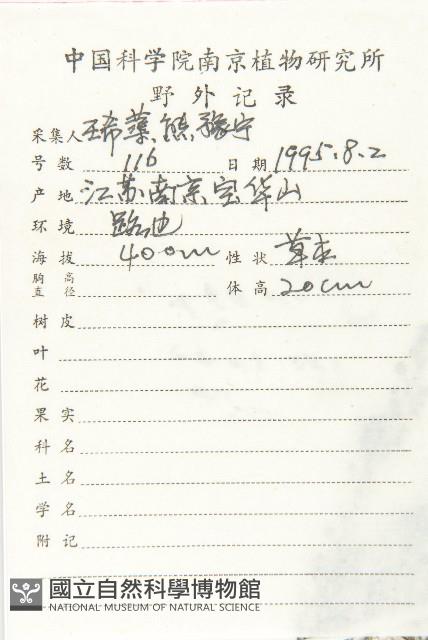 中国科学院南京植物研究所
野外记录
采集人 王希蕖、熊豫宁
号数 116 日期 1995.8.2
产地 江苏南京宝华山
环境 路边
海拔 400m 性状 草本
胸高直径 体高 20cm
树皮
叶
花
果实
科名
土名
学名
附记
國立自然科學博物館
NATIONAL MUSEUM OF NATURAL SCIENCE